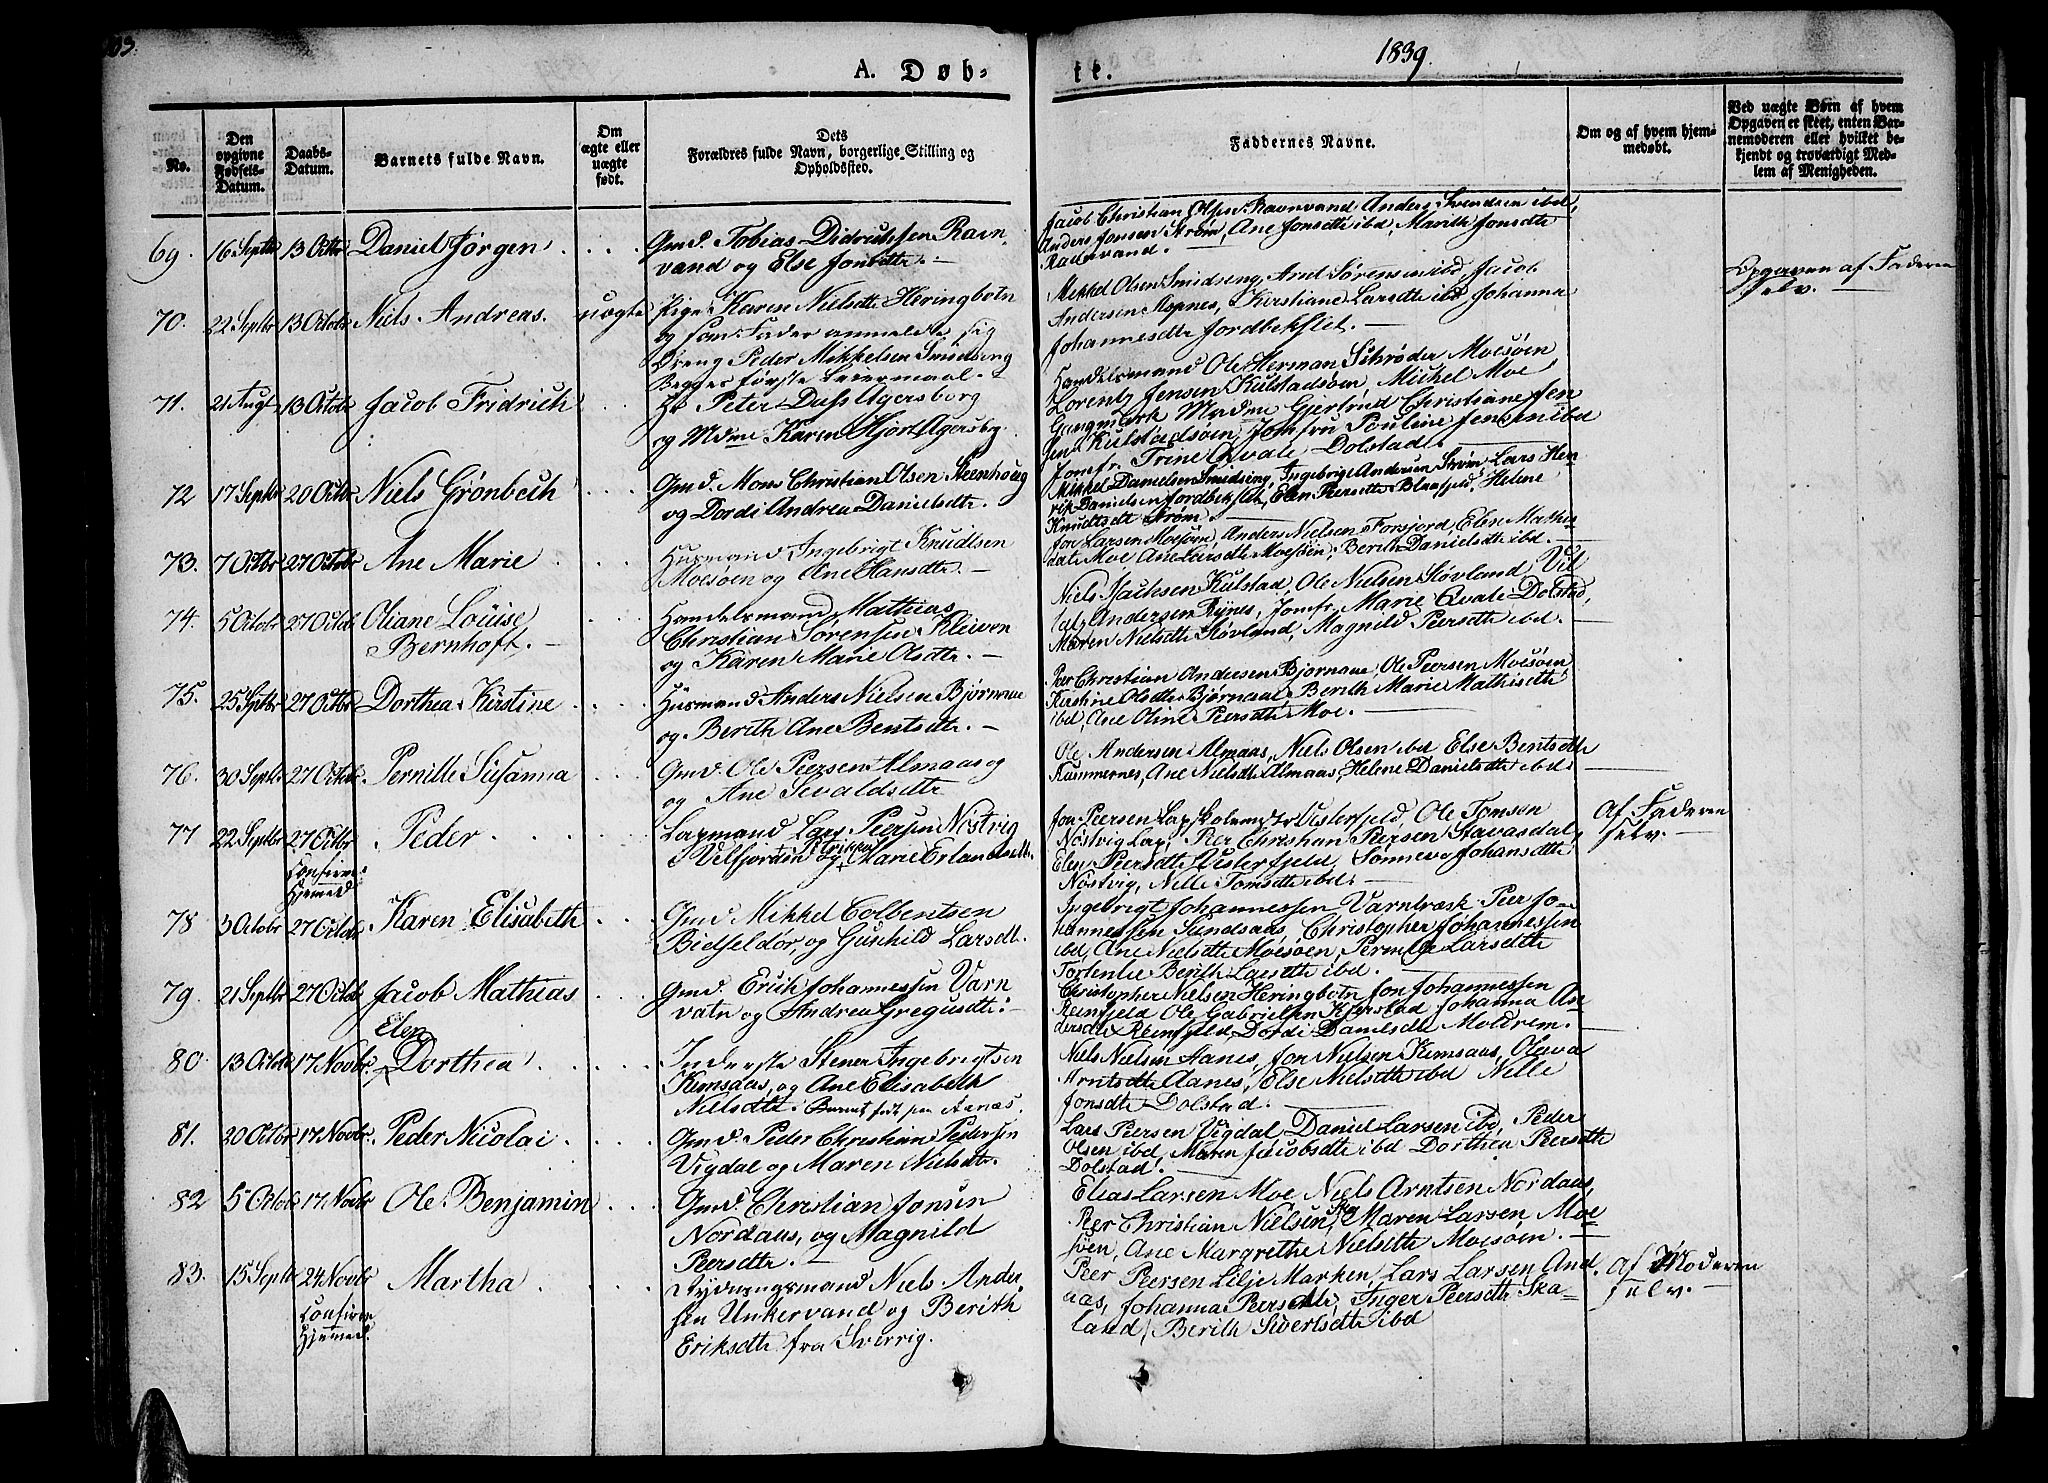 103.
A. Døb-
te.
1839.
No.
Den opgivne Fødsels-Datum.
Daabs-Datum.
Barnets fulde Navn.
Om ægte eller uægte født.
Dets
Forældres fulde Navn, borgerlige Stilling og
Opholdssted.
Faddernes Navne.
Om og af hvem hjem-
medøbt.
Ved uægte Børn af hvem
Opgaven er skeet, enten Bar-
nemoderen eller hvilket be-
kjendt og troværdigt Med-
lem af Menigheden.
69. 16 Septbr 13 Octbr Daniel Jørgen
Gmd. Tobias Didrichsen Ravn-
vand og Else Jonsdtr.
Jacob Christian Olsen Ravnvand Anders Svendsen ibd,
Anders Jonsen Strøm, Ane Jonsdtr ibd, Marith Jonsdtr
Ravnvand.
70. 22 Septbr 13 Octobr Niels Andreas. uægte
Pige Karen Nielsdtr Heringbotn
og som Fader anmeldte sig
Dreng Peder Mikkelsen Smidseng
Begges første Leiermaal.
Mikkel Olsen Smidseng Arnt Sørensen ibd, Jacob
Andersen Aspnes, Kirstiane Larsdtr ibd, Johanna
Johannesdtr Jordbekslet.
Opgaven af Faderen
selv.
71. 21 Augt 13 Octobr Jacob Fridrich
Hr Peter Dass Agersborg
og Mdme Karen Hjort Agersbrg.
Handelsmand Ole Herman Schrøder Mosøen
Lorentz Jensen Kulstadsøen, Michel Moe
Madme Gjertrud Christiane Jen
sen Kulstadsøen, Jomfru Pouline Jensen ibd
Jomfr. Trine Qvale Dolstad.
72 17 Septbr 20 Octbr Niels Grønbech
Gmd. Mons Christian Olsen Steenhoug
og Dordi Andrea Danielsdtr.
Mikkel Danielsen Smidseng, Ingebrigt Andersen Strøm, Lars Hen-
rik Danielsen Jordbekslet, Elen Peersdtr Blaafjeld, Helene
Knudtsdtr Strøm.
73. 7 Octbr 27 Octobr Ane Marie
Husmand Ingebrigt Knudtsen
Mosøen og Ane Hansdtr.
Jon Larsen Mosøen, Anders Nielsen Forsjord, Elen Mathis-
datr Moe Ane Larsdtr Mosøen, Berith Danielsdtr ibd.
74. 5 Octobr 27 Octob Oliane Louise
Bernhoft.
Handelsmand Mathias
Christian Sørensen Kleiven
og Karen Marie Olsdtr.
Niels Isachsen Kulstad, Ole Nielsen Støvland,
Andersen Rynes, Jomfr. Marie Qvale Dolstad,
Maren Nielsdtr Støvland, Magnild Peersdtr ibd.
75. 25 Septbr 27 Octbr Dorthea Kirstine
Husmand Anders Nielsen Bjørnaae
og Berith Ane Bentsdtr.
Peer Christian Andersen Bjørnaae, Ole Peersen Mosøen
Kirstine Olsdtr Bjørnaae, Berith Marie Mathisdtr
ibd, Ane Oline Peersdtr Moe.
76. 30 Septbr 27 Octobr Pernille Susanna
Gmd. Ole Peersen Almaas og
og Ane Sevaldsdtr
Ole Andersen Almaas, Niels Olsen ibd Else Bentsdtr
Kummernes, Ane Nielsdtr Almaas, Helene Danielsdtr ibd.
77 22 Septbr 27 Octbr Peder
Confirm:
Hjemed
Lapmand Lars Peersen Nøstvig
Velfjorden og Marie Erlandsdtr.
Jon Peersen Lap Vesterfjeld, Ole Tomsen
Nøstvig Lap, Peer Christian Peersen Stavasdal,
Elen Peersdtr Vesterfjeld, Sønneva Johansdtr
Nøstvig, Nille Tomsdtr ibd.
Af Faderen
selv.
78 3 Octobr 27 Octobr Karen Elisabeth
Gmd Mikkel Colbentsen
og Gunhild Larsdt.
Ingebrigt Johannessen Varntræsk Peer Jo-
hannessen Sundsaas, Christopher Johannessen
ibd, Ane Nielsdtr Mosøen, Pernille Larsdtr
Berith Larsdtr ibd.
79. 21 Septbr 27 Octob Jacob Mathias
Gmd. Erich Johannessen Varn
vatn og Andrea Gregusdtr.
Christopher Nielsen Heringbotn Jon Johannessen
Reinfjeld Ole Gabrielsen Kjerstad Johanna An-
dersdtr Reinfjeld, Dordi Danielsdtr Moldrem.
80. 13 Octob 17 Novbr. Elen
Dorthea
Inderste Stener Ingebrigtsen
Kemsaas, og Ane Elisabeth
Nielsdtr. Barnet født paa Aanes.
Niels Nielsen Aanes, Jon Nielsen Kemsaas, Olava
Arntsdtr Aanes, Else Nielsdtr ibd Nille
Jonsdtr Dolstad.
81. 20 Octbr 17 Novbr. Peder Nicolai
Gmd. Peder Christian Pedersen
Vigdal og Maren Nielsdtr.
Lars Peersen Vigdal, Daniel Larsen ibd, Peder
Olsen ibd, Maren Jacobsdtr ibd Dorthea Peersdtr
Dolstad.
82 5 Octob 17 Novbr Ole Benjamin
Gmd. Christian Jonsen
Nordaas, og Magnild
Peersdtr.
Elias Larsen Moe Niels Arntsen Nordaas,
Peer Christian Nielsen, Maren Larsen Moe
søen, Ane Margrethe Nielsdtr Mosøen.
83. 15 Septbr 24 Novbr Martha
Confirm
Hjemed.
Rydningsmand Niels Ander
sen Unkervand og Berith
Eriksdtr fra Sverrig.
Peer Peersen Lilje Marken, Lars Larsen And.
aas, Johanna Peersdtr, Inger Peersdtr Ska-
land, Berith Sivertsdtr ibd
Af Moderen
selv.